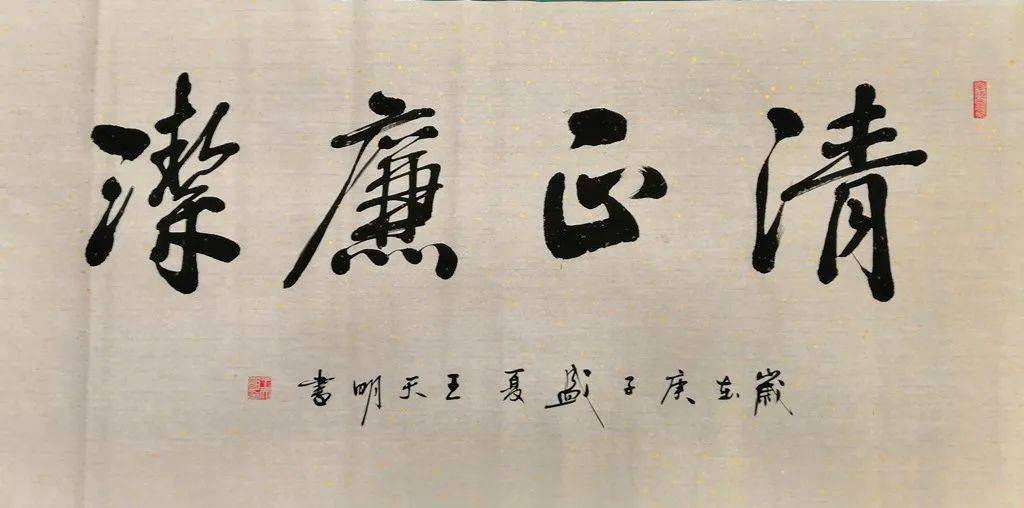 清正廉潔
歲在庚子盛夏王天明書